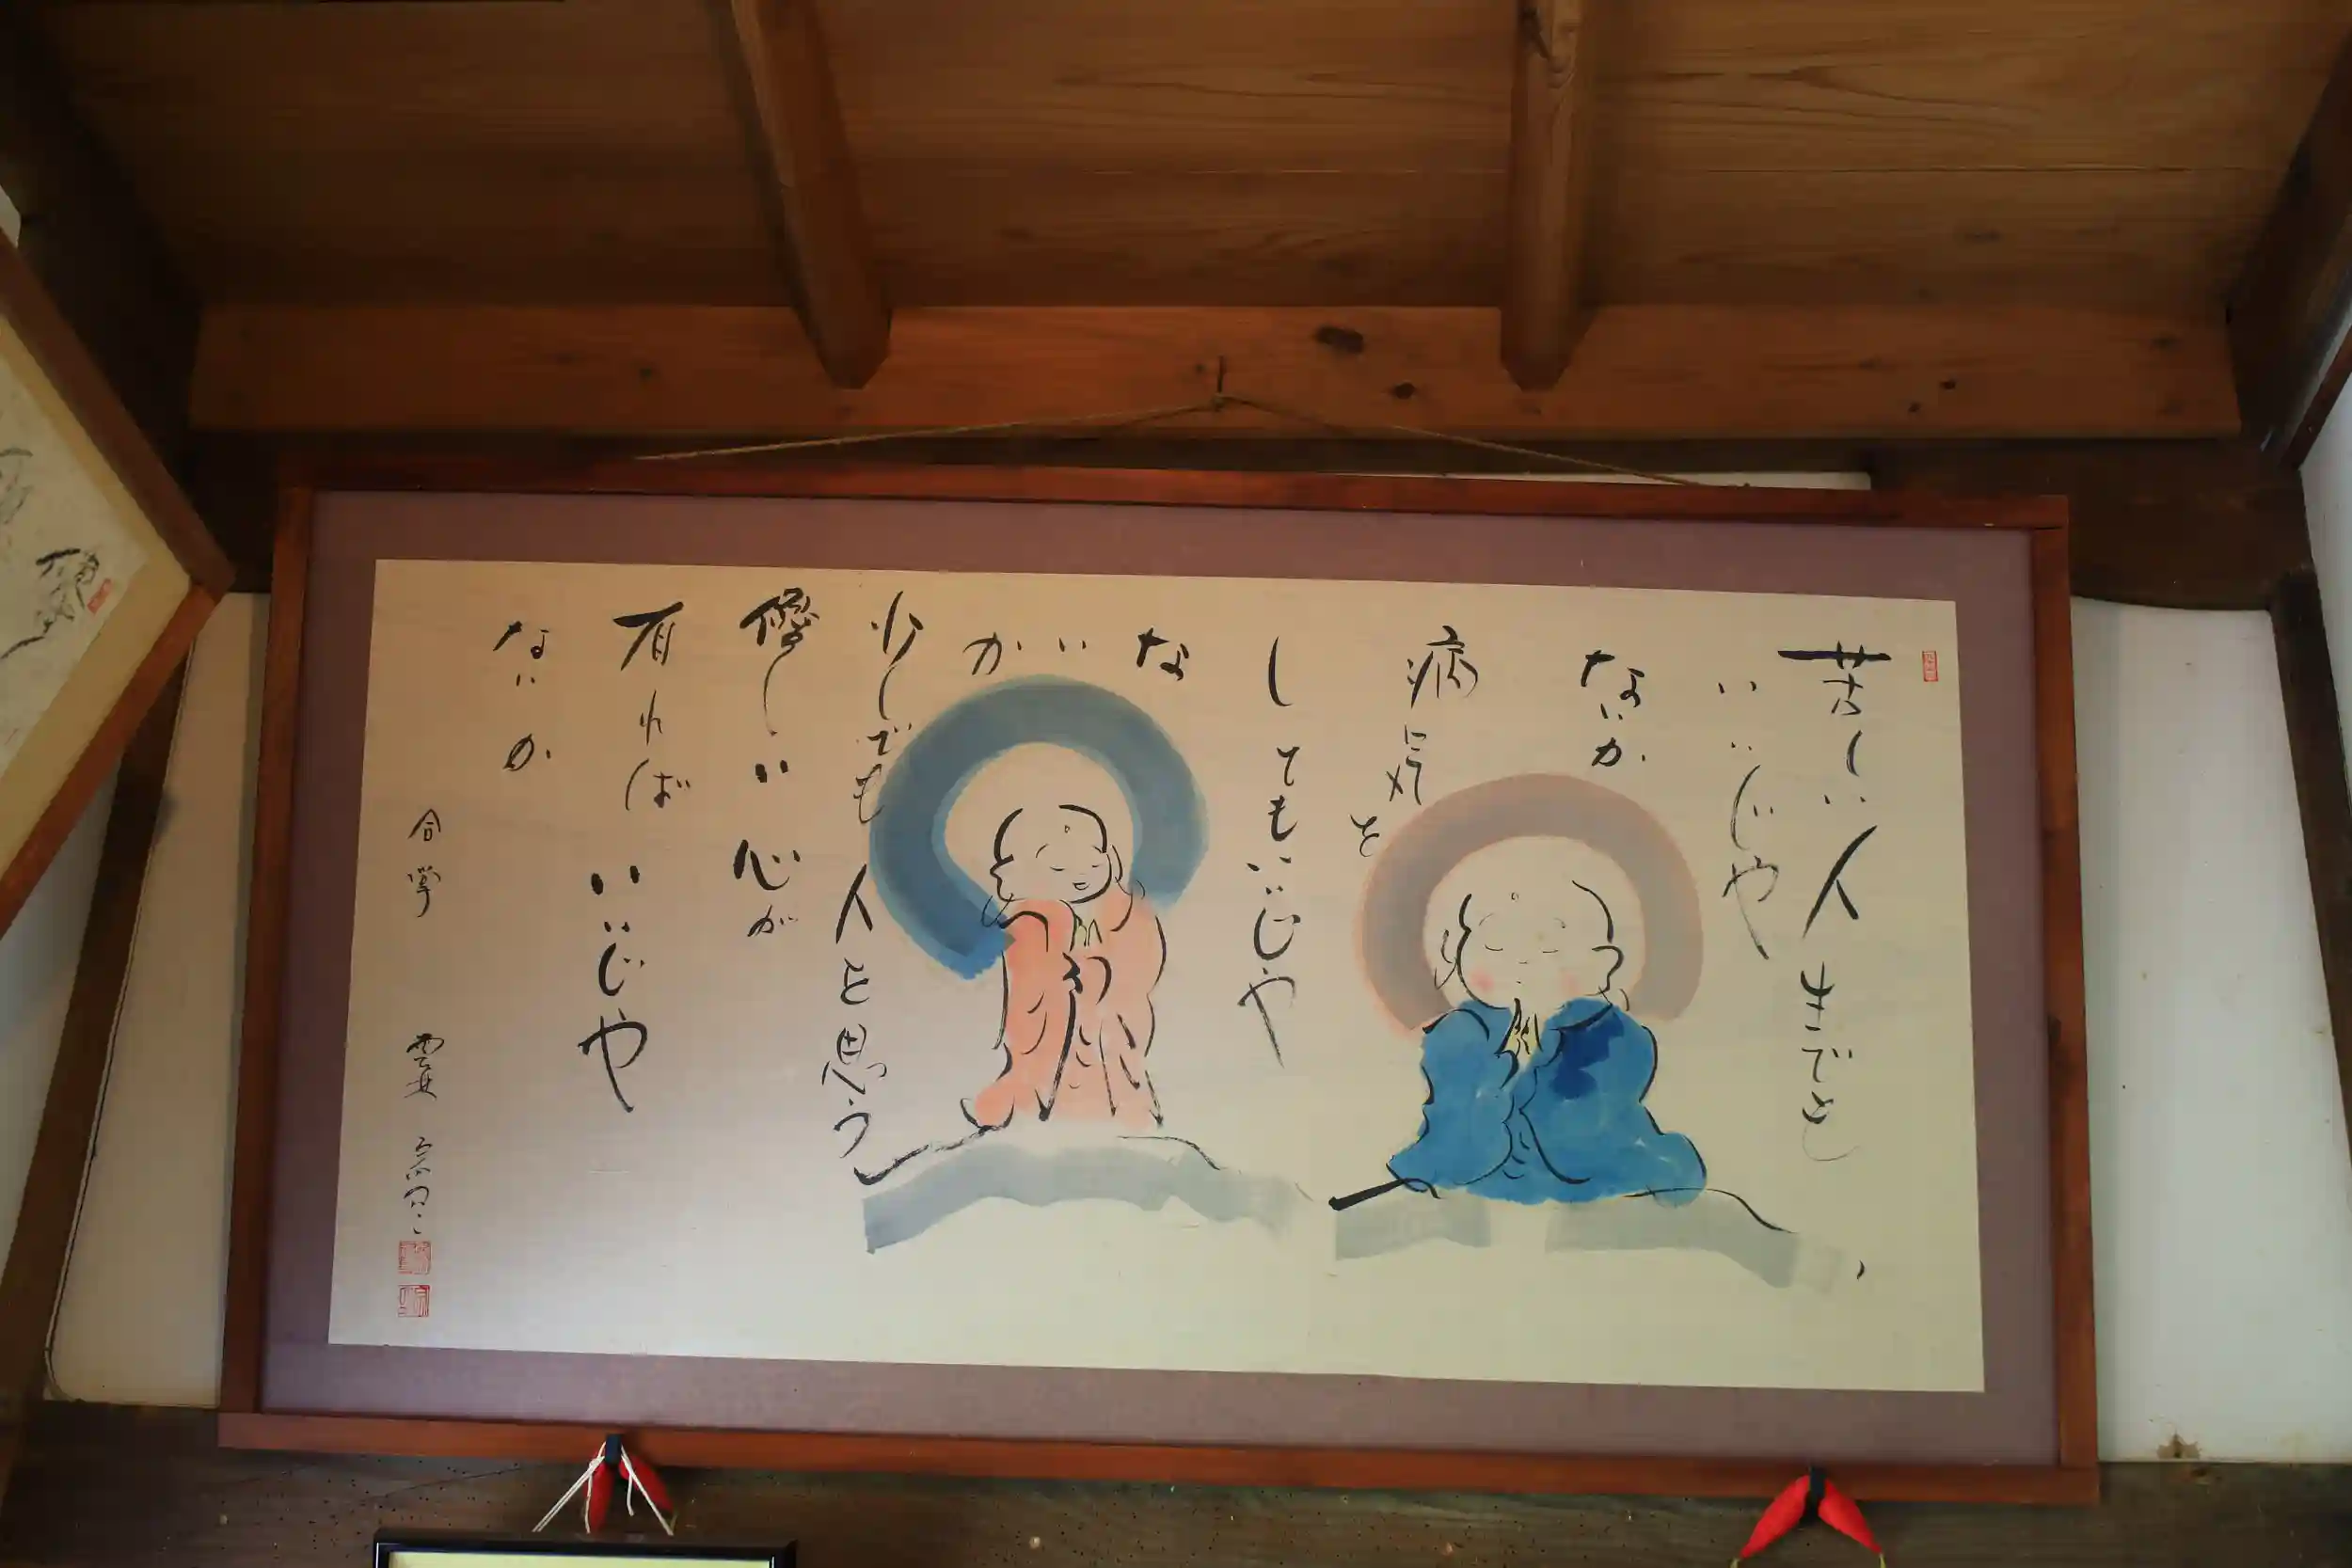 苦しい人生でも
いいじゃ
ないか
病気を
してもいいじゃ
な
い
か
少しでも人と思う
優しい心が
有ればいいじゃ
ないか
合掌